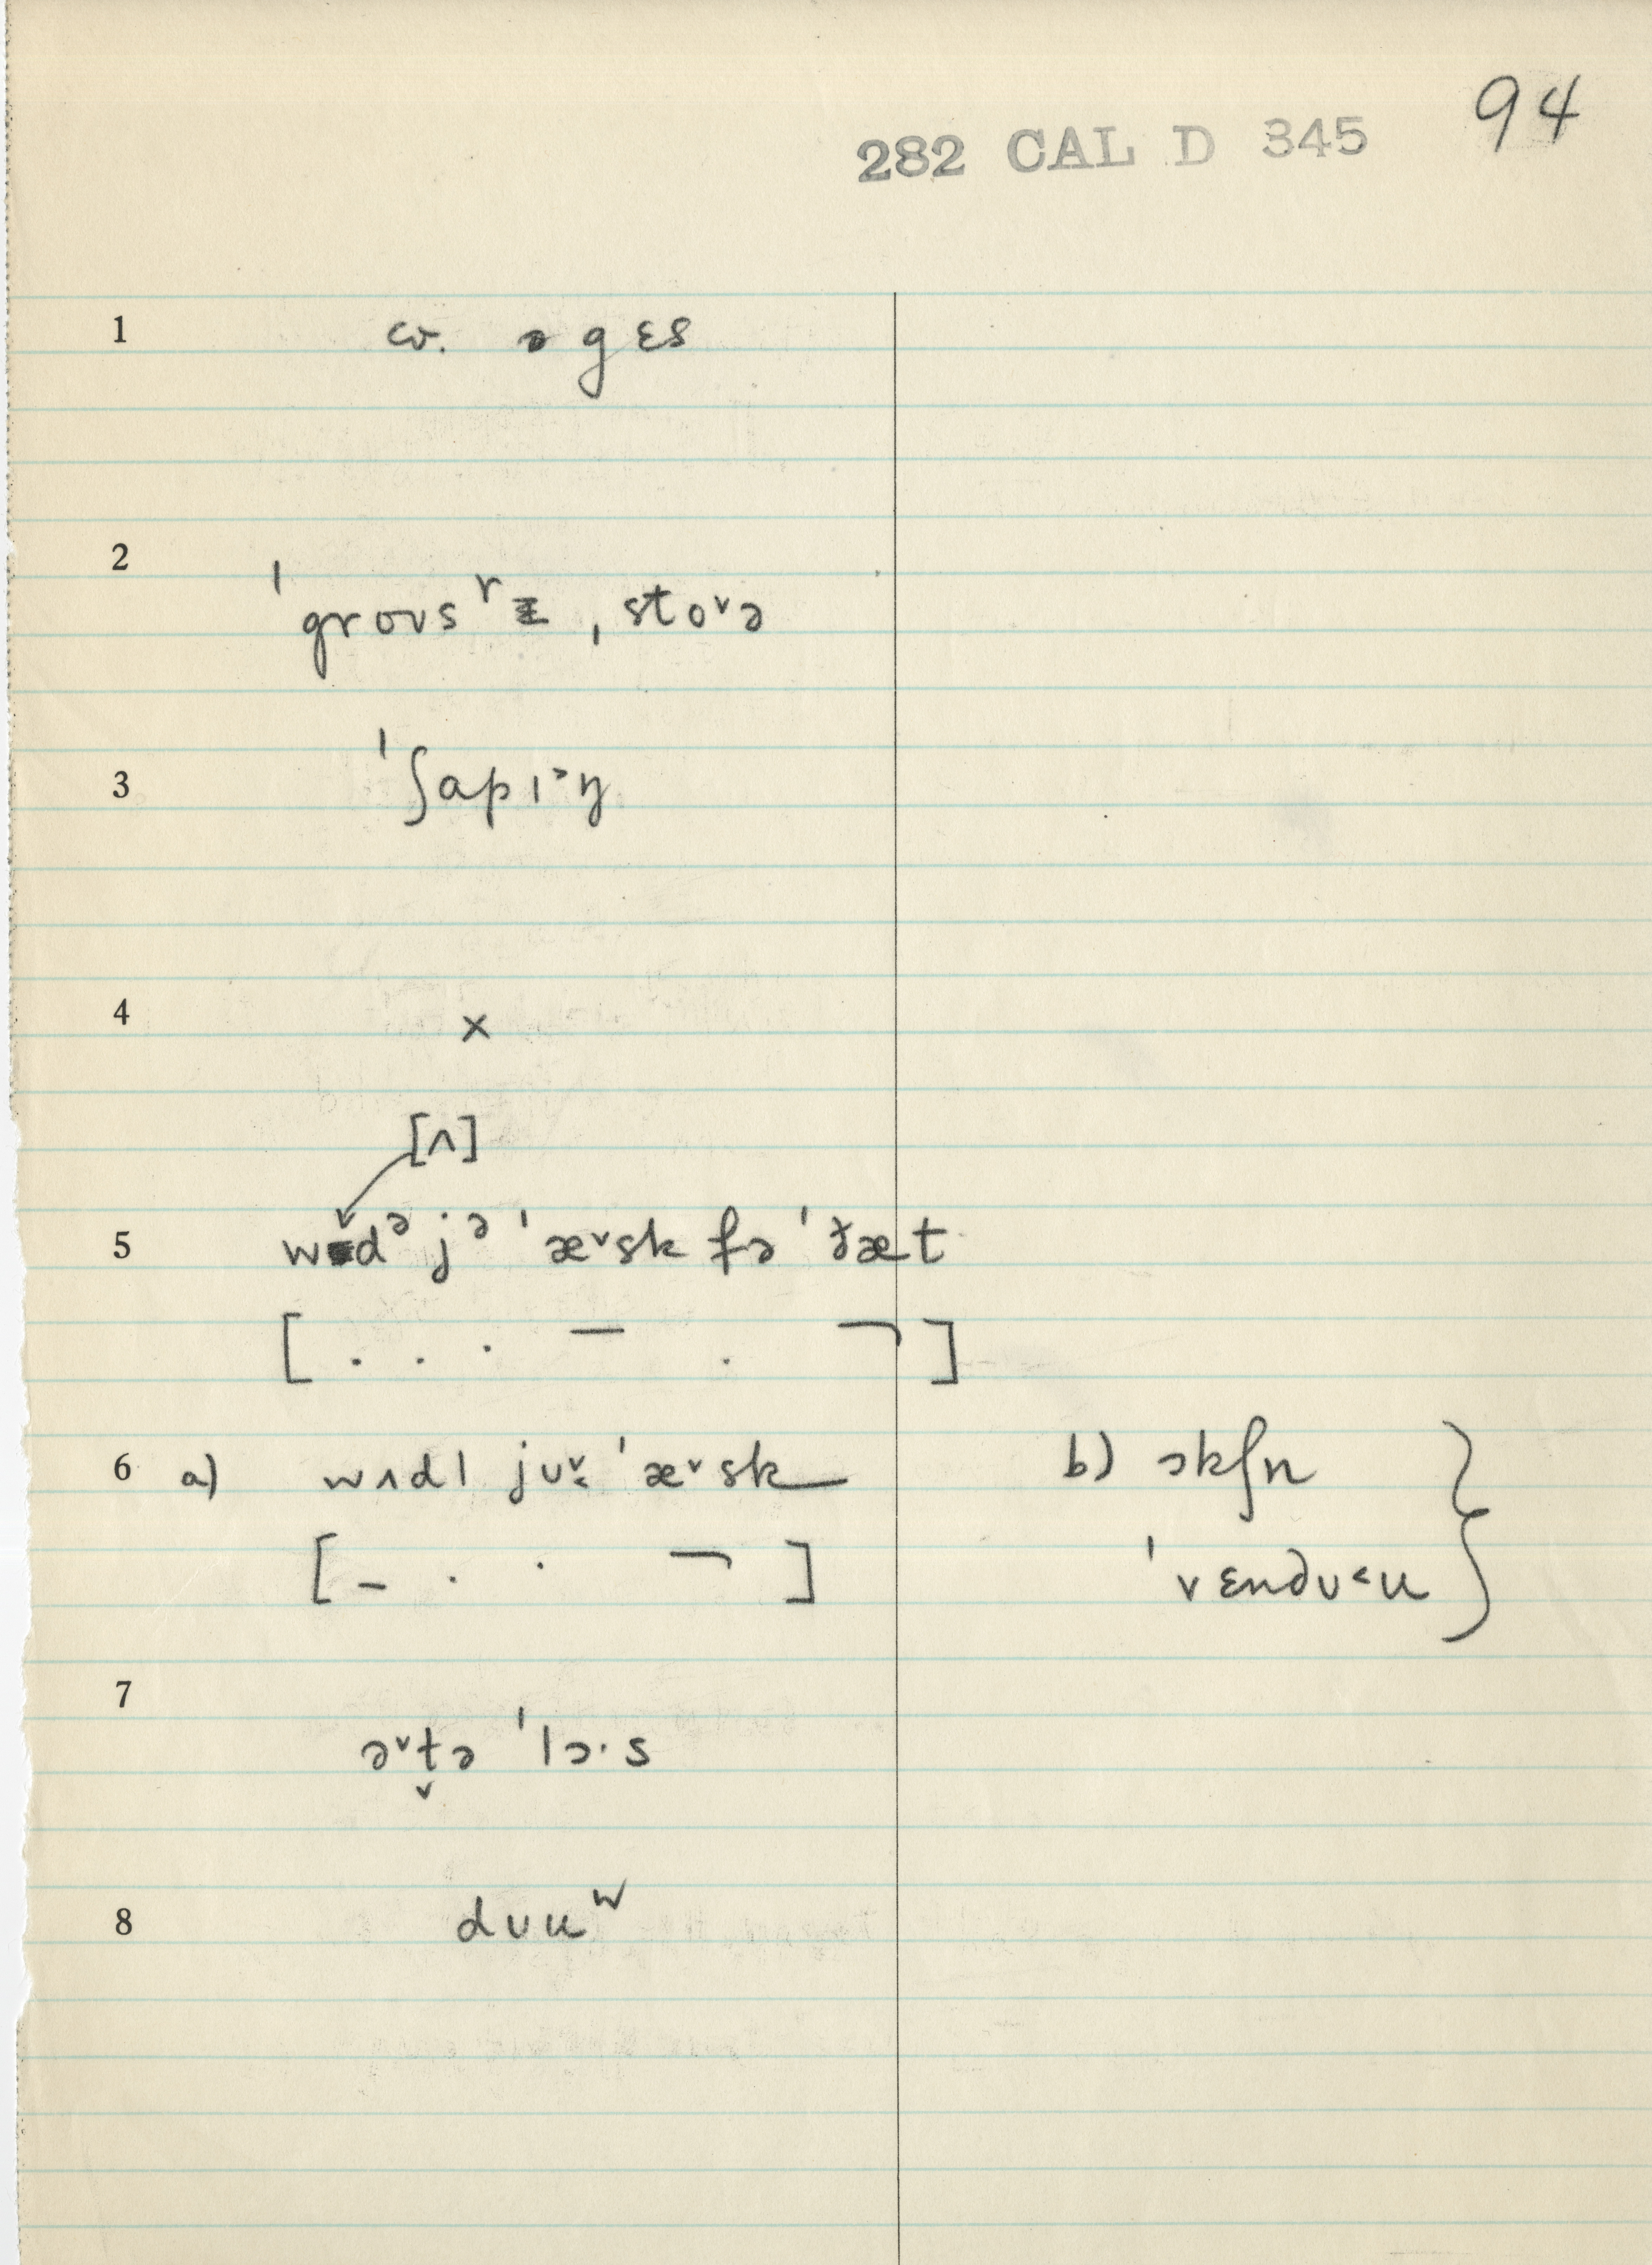 94
282 CAL D 345
1 cv. ə gɛs
2 ˈgroʊsʳɪ ˌstoᵛə
3 ˈʃapɪ˃ŋ
4 ×
[ʌ]
5 wʌdᵊ jᵊ ˈæᵛsk fə ˈðæt
[ . . . — . ¬ ]
6 a) wʌdl jʊᵛ ˈæᵛsk b) ɔkʃn
[ – . · ¬ ] ˈvɛndʊ˂u
7 əᵛt̬ə ˈlɔ·s
8 dʊuʷ